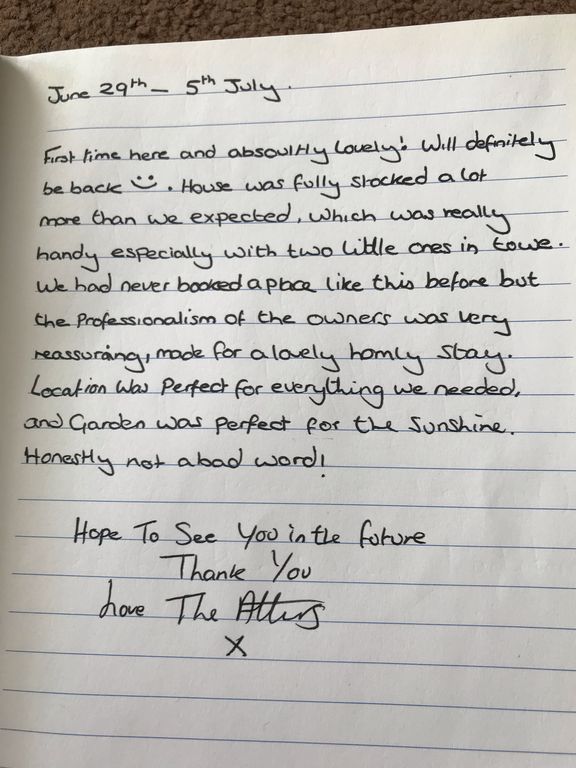 June 29th - 5th July.
First time here and absoultly lovely! Will definitely
be back :) . House was fully stocked a lot
more than we expected, which was really
handy especially with two little ones in towe.
We had never booked a place like this before but
the Professionalism of the owners was very
reassuring, made for a lovely homly stay.
Location Was Perfect for everything we needed,
and Garden was perfect for the Sunshine.
Honestly not a bad word!
Hope To See You in the future
Thank You
Love The
X